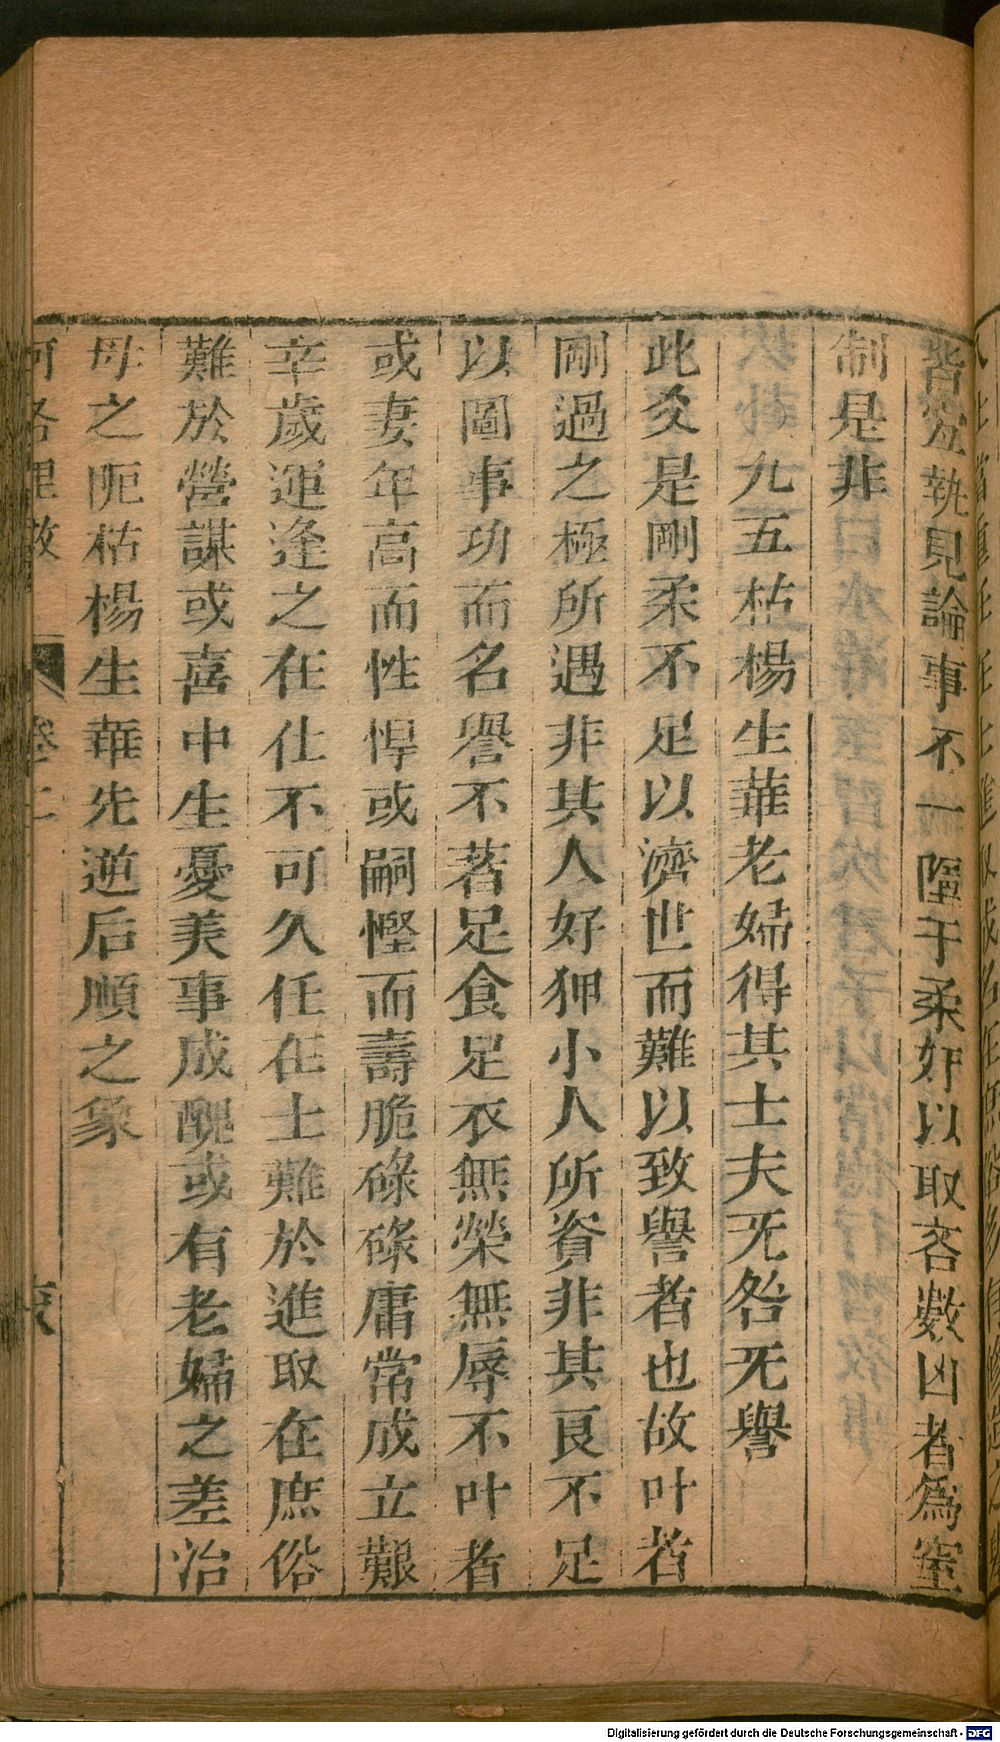 皆宜執見論事不一陷于柔奸以取吝數凶者為窒
制是非
九五枯楊生華老婦得其士夫无咎无譽
此爻是剛柔不足以濟世而難以致譽者也故叶者
剛過之極所遇非其人好狎小人所資非其良不足
以圖事功而名譽不著足食足衣無榮無辱不叶者
或妻年高而性悍或嗣慳而壽脆碌碌庸常成立艱
辛歲運逢之在仕不可久任在士難於進取在庶俗
難於營謀或喜中生憂美事成醜或有老婦之差治
母之阨枯楊生華先逆后順之象
河洛理數 卷二
Digitalisierung gefördert durch die Deutsche Forschungsgemeinschaft - DFG